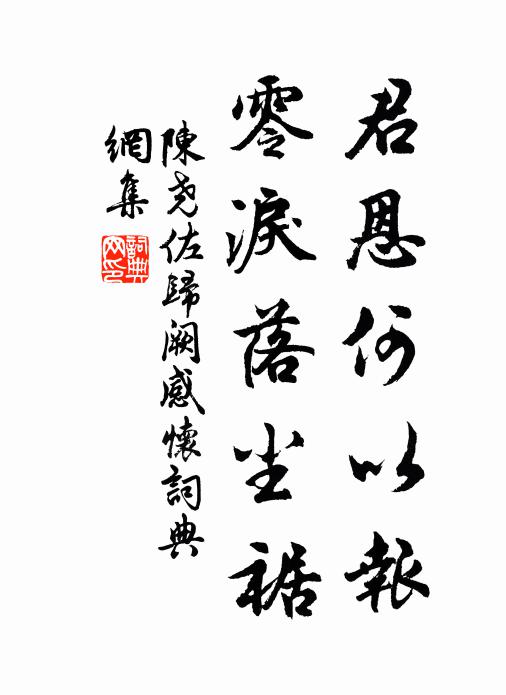 君恩何以報
零淚落尘裾
陳尧佐歸闕感懷詞典
網集
詞典
网印